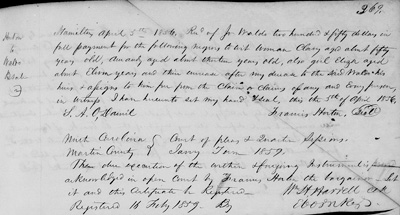 269.
Hamilton April 5th 1856. Recd of Jos Waldo two hundred & fifty dollars in
full payment for the following negros to wit Woman Clary aged about fifty
year old, Amandy aged about thirteen years old, also girl Eliza aged
about Eleven years and their increase after my decease to the said Waldo his
heirs & assigns to him free from the Claim or Claims of any and every persons,
in witness I have hereunto set my hand & seal, this the 5th of April 1856.
S. A. O'Daniel Francis Horton, Seal
North Carolina } Court of pleas & Quarter Sessions.
Martin County } Janry Term 1857
Then above execution of the written & foregoing Instrument is
acknowledged in open Court by Francis the bargainor Let
it and this Certificate be Registered.
Registered 16 Feby 1857. By
Horton
to
Waldo